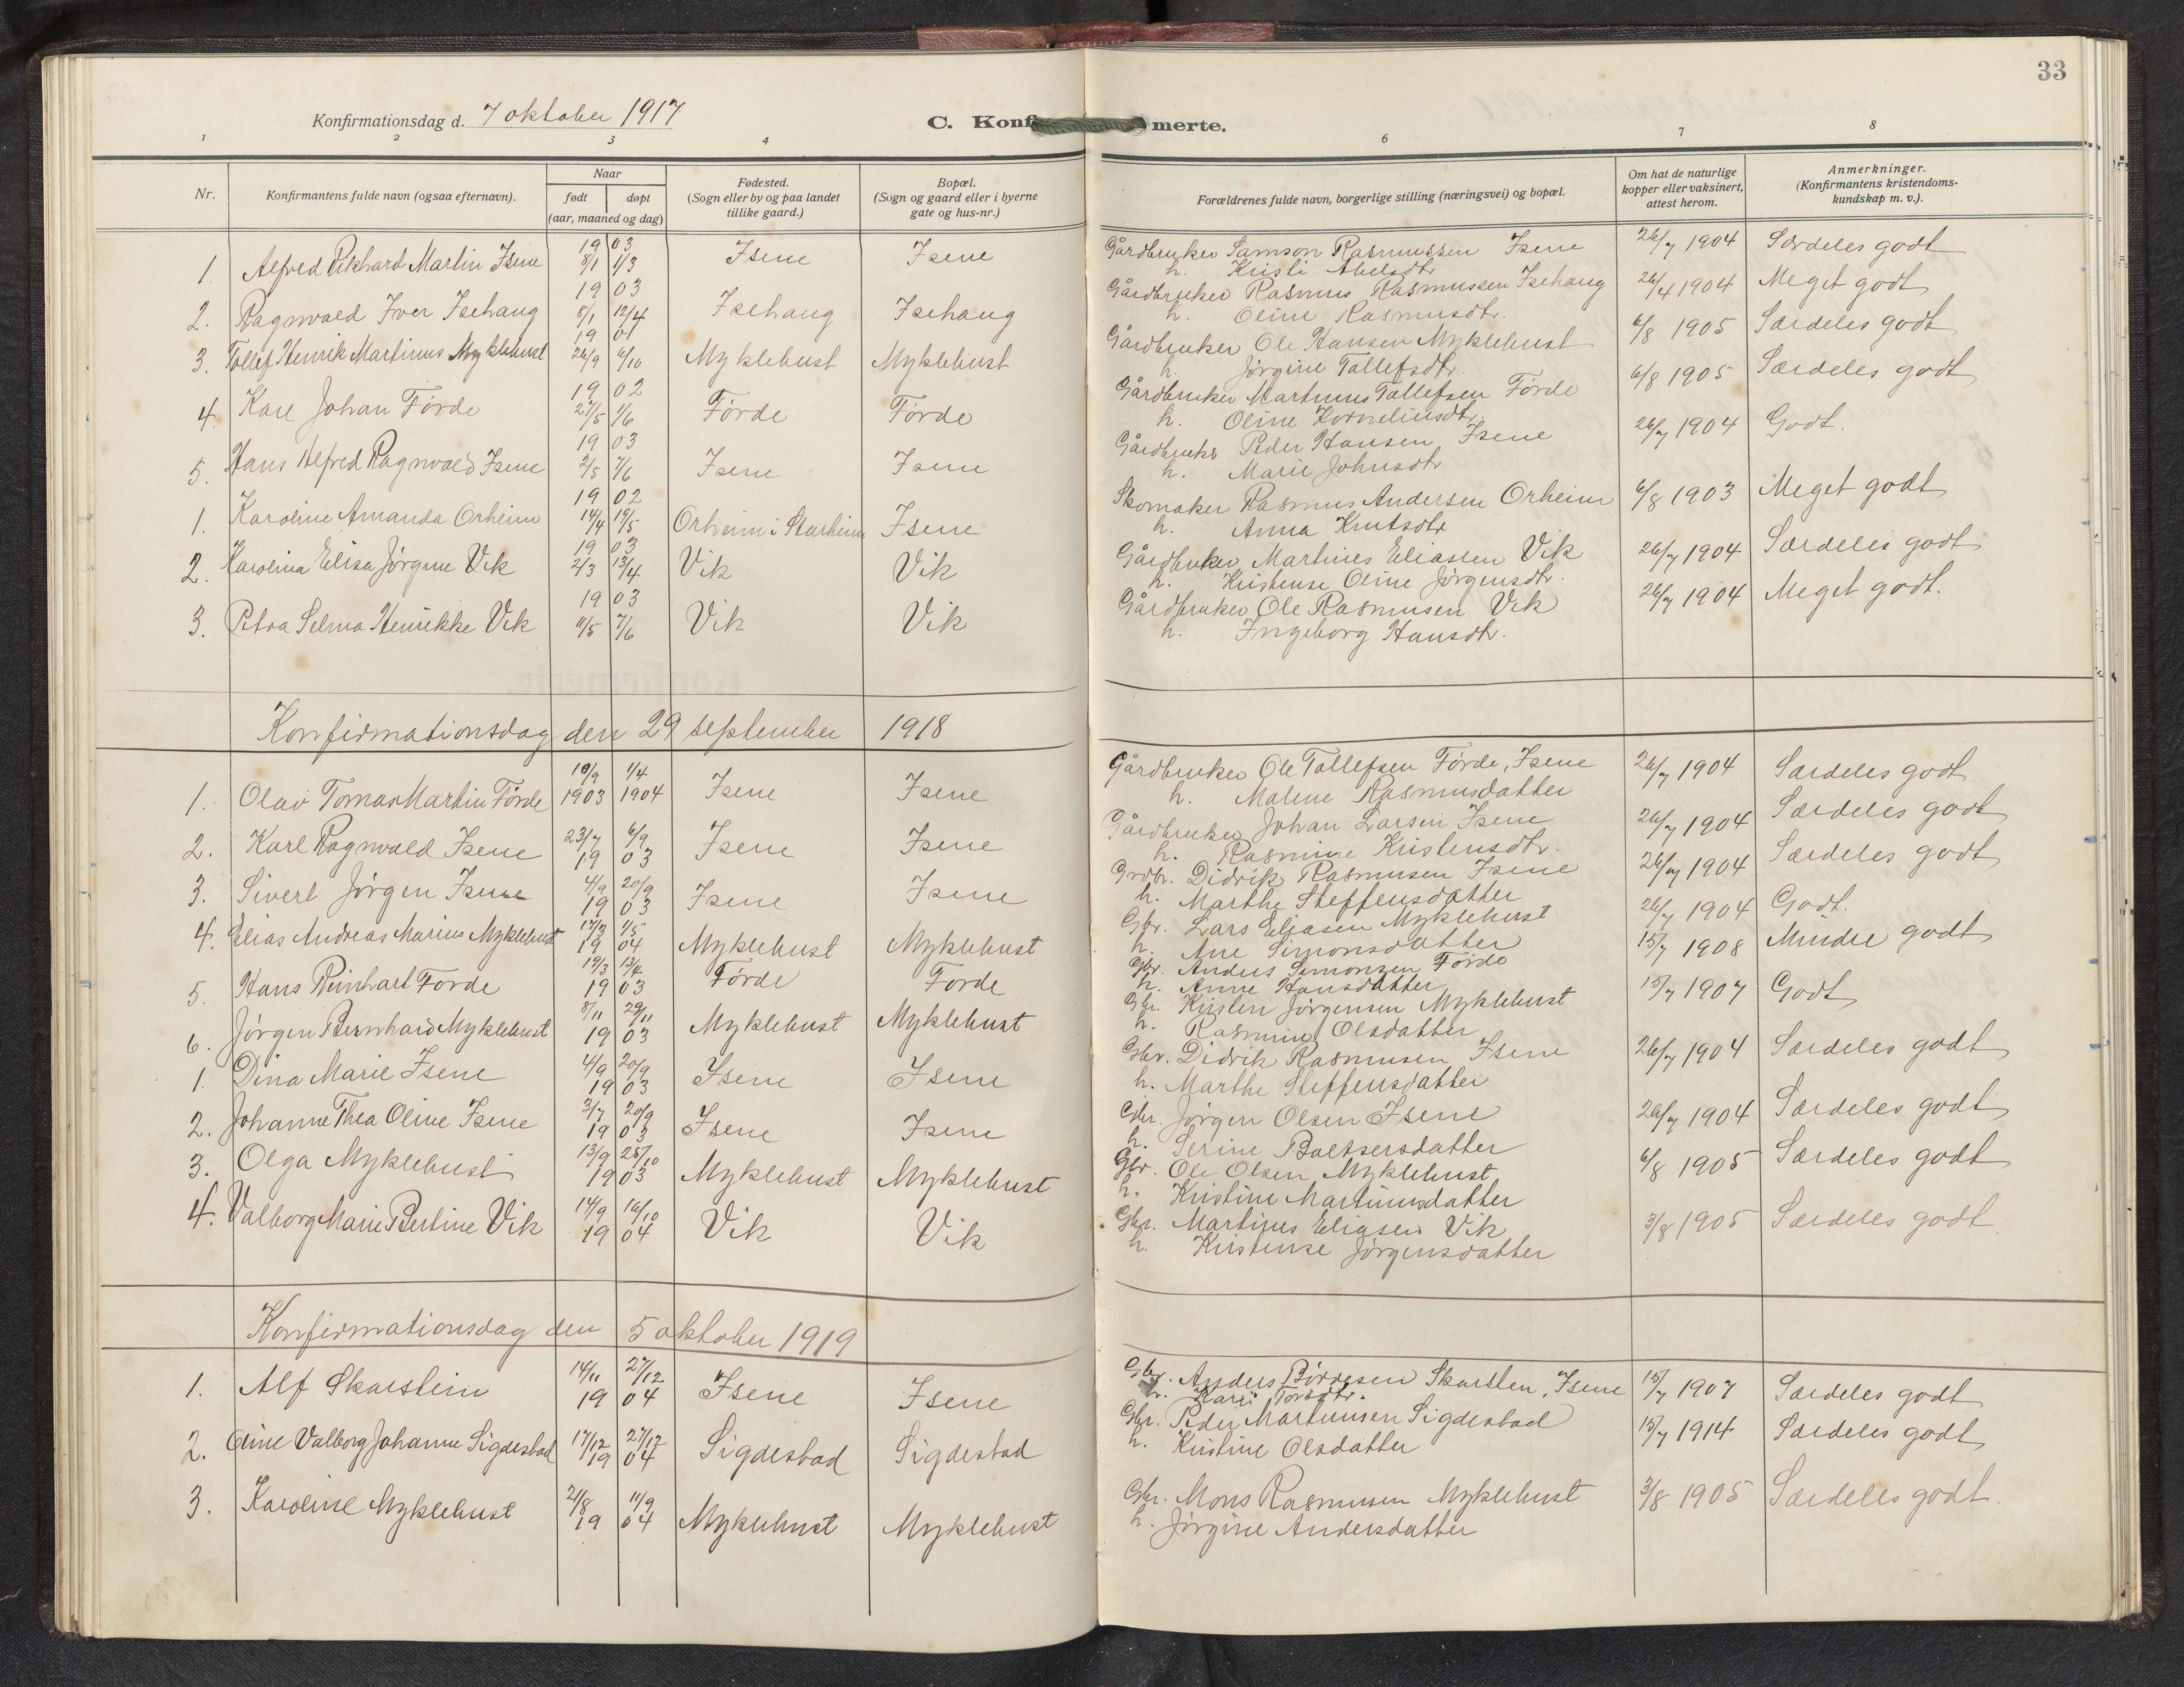 33
Konfirmationsdag d. 7 oktober 1917
C. Konf merte.
1 2 3 4 6 7 8
Nr.
Konfirmantens fulde navn (ogsaa efternavn).
Naar
født døpt
(aar, maaned og dag)
Fødested.
(Sogn eller by og paa landet
tillike gaard.)
Bopæl.
(Sogn og gaard eller i byerne
gate og hus-nr.)
Forældrenes fulde navn, borgerlige stilling (næringsvei) og bopæl.
Om hat de naturlige
kopper eller vaksinert,
attest herom.
Anmerkninger.
(Konfirmantens kristendoms-
kundskap m. v.).
19 03
1. Alfred Rikhard Martin Isene 8/1 1/3 Isene Isene Gårdbruker Samson Rasmussen Isene 26/7 1904 Særdeles godt
h. Kristi Abelsdtr
19 03
2. Ragnvald Iver Isehaug 8/1 12/4 Isehaug Isehaug Gårdbruker Rasmus Rasmussen Isehaug 26/4 1904 Meget godt
h. Oline Rasmusdtr.
19 01
3. Tollef Henrik Martinus Myklebust 26/9 6/10 Myklebust Myklebust Gårdbruker Ole Hansen Myklebust 6/8 1905 Særdeles godt
h. Jørgine Tollefsdtr.
19 02
4. Karl Johan Førde 27/5 1/6 Førde Førde Gårdbruker Martinus Tollefsen Førde 6/8 1905 Særdeles godt
h. Oline Korneliusdtr.
19 03
5. Hans Alfred Ragnvald Isene 2/5 7/6 Isene Isene Gårdbruker Peder Hansen Isene 26/7 1904 Godt.
h. Marie Johnsdtr
19 02
1. Karoline Amanda Orheim 14/4 19/5 Orheim i Starheim Isene Skomaker Rasmus Andersen Orheim 6/8 1903 Meget godt
h. Anna Knutsdtr
19 03
2. Karolina Elisa Jørgine Vik 2/3 13/4 Vik Vik Gårdbruker Martines Eliassen Vik 26/7 1904 Særdeles godt
h. Kristense Oline Jørgensdtr.
19 03
3. Petra Selma Henrikke Vik 11/5 7/6 Vik Vik Gårdbruker Ole Rasmusen Vik 26/7 1904 Meget godt.
h. Ingeborg Hansdtr.
Konfirmationsdag den 29 september 1918
10/9 1/4
1. Olav Tomas Martin Førde 1903 1904 Isene Isene Gårdbruker Ole Tollefsen Førde, Isene 26/7 1904 Særdeles godt
h. Malene Rasmusdatter
23/7 6/9
2. Karl Ragnvald Isene 19 03 Isene Isene Gårdbruker Johan Larsen Isene 26/7 1904 Særdeles godt
h. Rasmine Kristensdtr.
4/9 20/9
3. Sivert Jørgen Isene 19 03 Isene Isene Grdbr. Didrik Rasmusen Isene 26/7 1904 Særdeles godt
h. Marthe Steffensdatter
17/3 1/5
4. Elias Andreas Marius Myklebust 19 04 Myklebust Myklebust Gbr. Lars Eliasen Myklebust 26/7 1904 Godt.
h. Ane Simonsdatter
19/3 13/4
5. Hans Reinhart Førde 19 03 Førde Førde Gbr. Anders Simonsen Førde 15/7 1908 Mindre godt
h. Anne Hansdatter
8/11 29/11
6. Jørgen Bernhard Myklebust 19 03 Myklebust Myklebust Gbr. Kristen Jørgensen Myklebust 15/7 1907 Godt
h. Rasmine Olsdatter
4/9 20/9
1. Dina Marie Isene 19 03 Isene Isene Gbr. Didrik Rasmusen Isene 26/7 1904 Særdeles godt
h. Marthe Steffensdatter
3/7 20/9
2. Johanne Thea Oline Isene 19 03 Isene Isene Gbr. Jørgen Olsen Isene 26/7 1904 Særdeles godt
h. Serine Baltsersdatter
13/9 25/10
3. Olga Myklebust 19 03 Myklebust Myklebust Gbr. Ole Olsen Myklebust 6/8 1905 Særdeles godt
h. Kristine Martinusdatter
14/9 16/10
4. Valborg Marie Bertine Vik 19 04 Vik Vik Gbr. Martines Eliasen Vik 3/8 1905 Særdeles godt
h. Kristense Jørgensdatter
Konfirmationsdag den 5 oktober 1919
14/11 27/12
1. Alf Skarstein 19 04 Isene Isene Gbr. Anders Børresen Skarsten, Isene 15/7 1907 Særdeles godt
h. Kari Torsdtr.
17/12 27/12
2. Oline Valborg Johanne Sigdestad 19 04 Sigdestad Sigdestad Gbr. Peder Martinusen Sigdestad 15/7 1914 Særdeles godt
h. Kristine Olsdatter
21/8 11/9
3. Karoline Myklebust 19 04 Myklebust Myklebust Gbr. Mons Rasmusen Myklebust 3/8 1905 Særdeles godt.
h. Jørgine Andersdatter